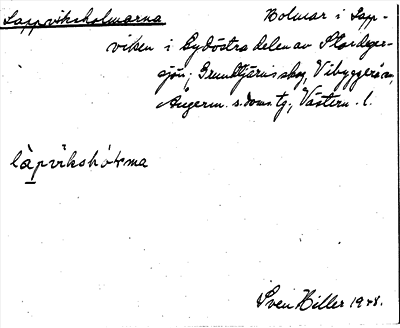 Lappviksholmarna Holmar i Lapp-
viken i Sydöstra delen av Stardeger-
sjön; Grundtjärns skog, Vibyggerå sn,
Ångerm. s. doms. tg., Västern. l.
làpvìkshòḷma
Sven Hiller 1948.